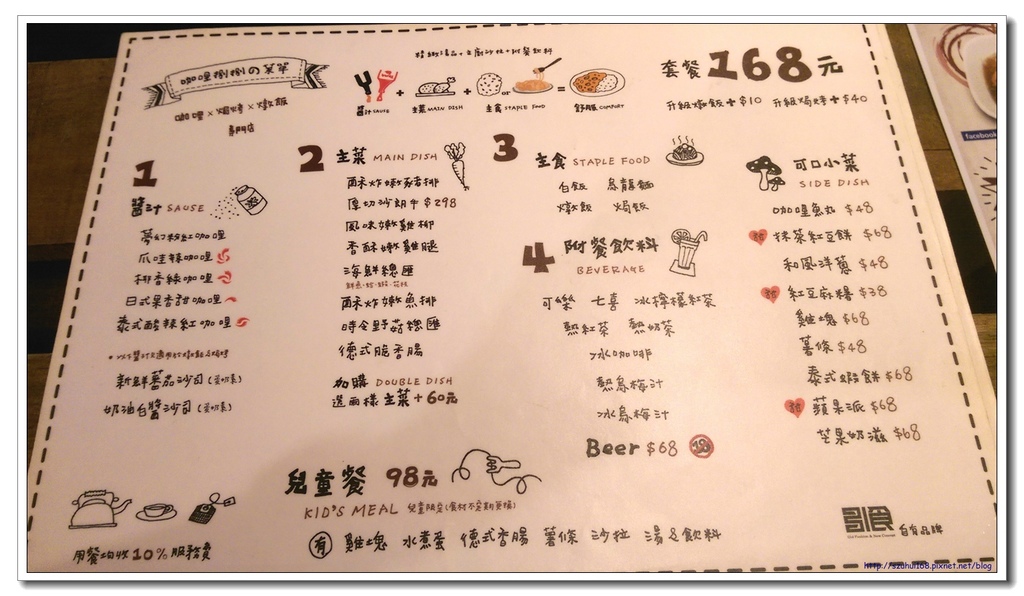 咖哩捌捌の菜單
咖哩×焗烤×燉飯
專門店
精緻湯品+主廚沙拉+附餐飲料
醬汁 SAUCE + 主菜 MAIN DISH + 主食 STAPLE FOOD or = 舒服 COMFORT
套餐168元
升級燉飯+$10 升級焗烤+$40
1
醬汁 SAUSE
夢幻粉紅咖哩
爪哇辣咖哩
椰香綠咖哩
日式果香甜咖哩
泰式酸辣紅咖哩
新鮮蕃茄沙司(蛋奶素)
奶油白醬沙司(蛋奶素)
2 主菜 MAIN DISH
酥炸嫩豬排
厚切沙朗牛$298
風味嫩雞柳
香酥嫩雞腿
海鮮總匯
酥炸嫩魚排
時令野菇總匯
德式脆香腸
加購 DOUBLE DISH
選兩樣主菜+60元
3 主食 STAPLE FOOD
白飯 烏龍麵
燉飯 焗飯
4 附餐飲料
BEVERAGE
可樂 七喜 冰檸檬紅茶
熱紅茶 熱奶茶
冰咖啡
熱烏梅汁
冰烏梅汁
Beer $68 18
可口小菜
SIDE DISH
咖哩魚丸 $48
甜 抹茶紅豆餅 $68
和風洋蔥 $48
甜 紅豆麻糬 $38
雞塊 $68
薯條 $48
泰式蝦餅 $68
甜 蘋果派 $68
芒果奶滋 $68
兒童餐 98元
KID'S MEAL 兒童限定(食材不定期更換)
有 雞塊 水煮蛋 德式香腸 薯條 沙拉 湯&飲料
用餐均收10%服務費
自有品牌
facebook
http://szuhui168.pixnet.net/blog